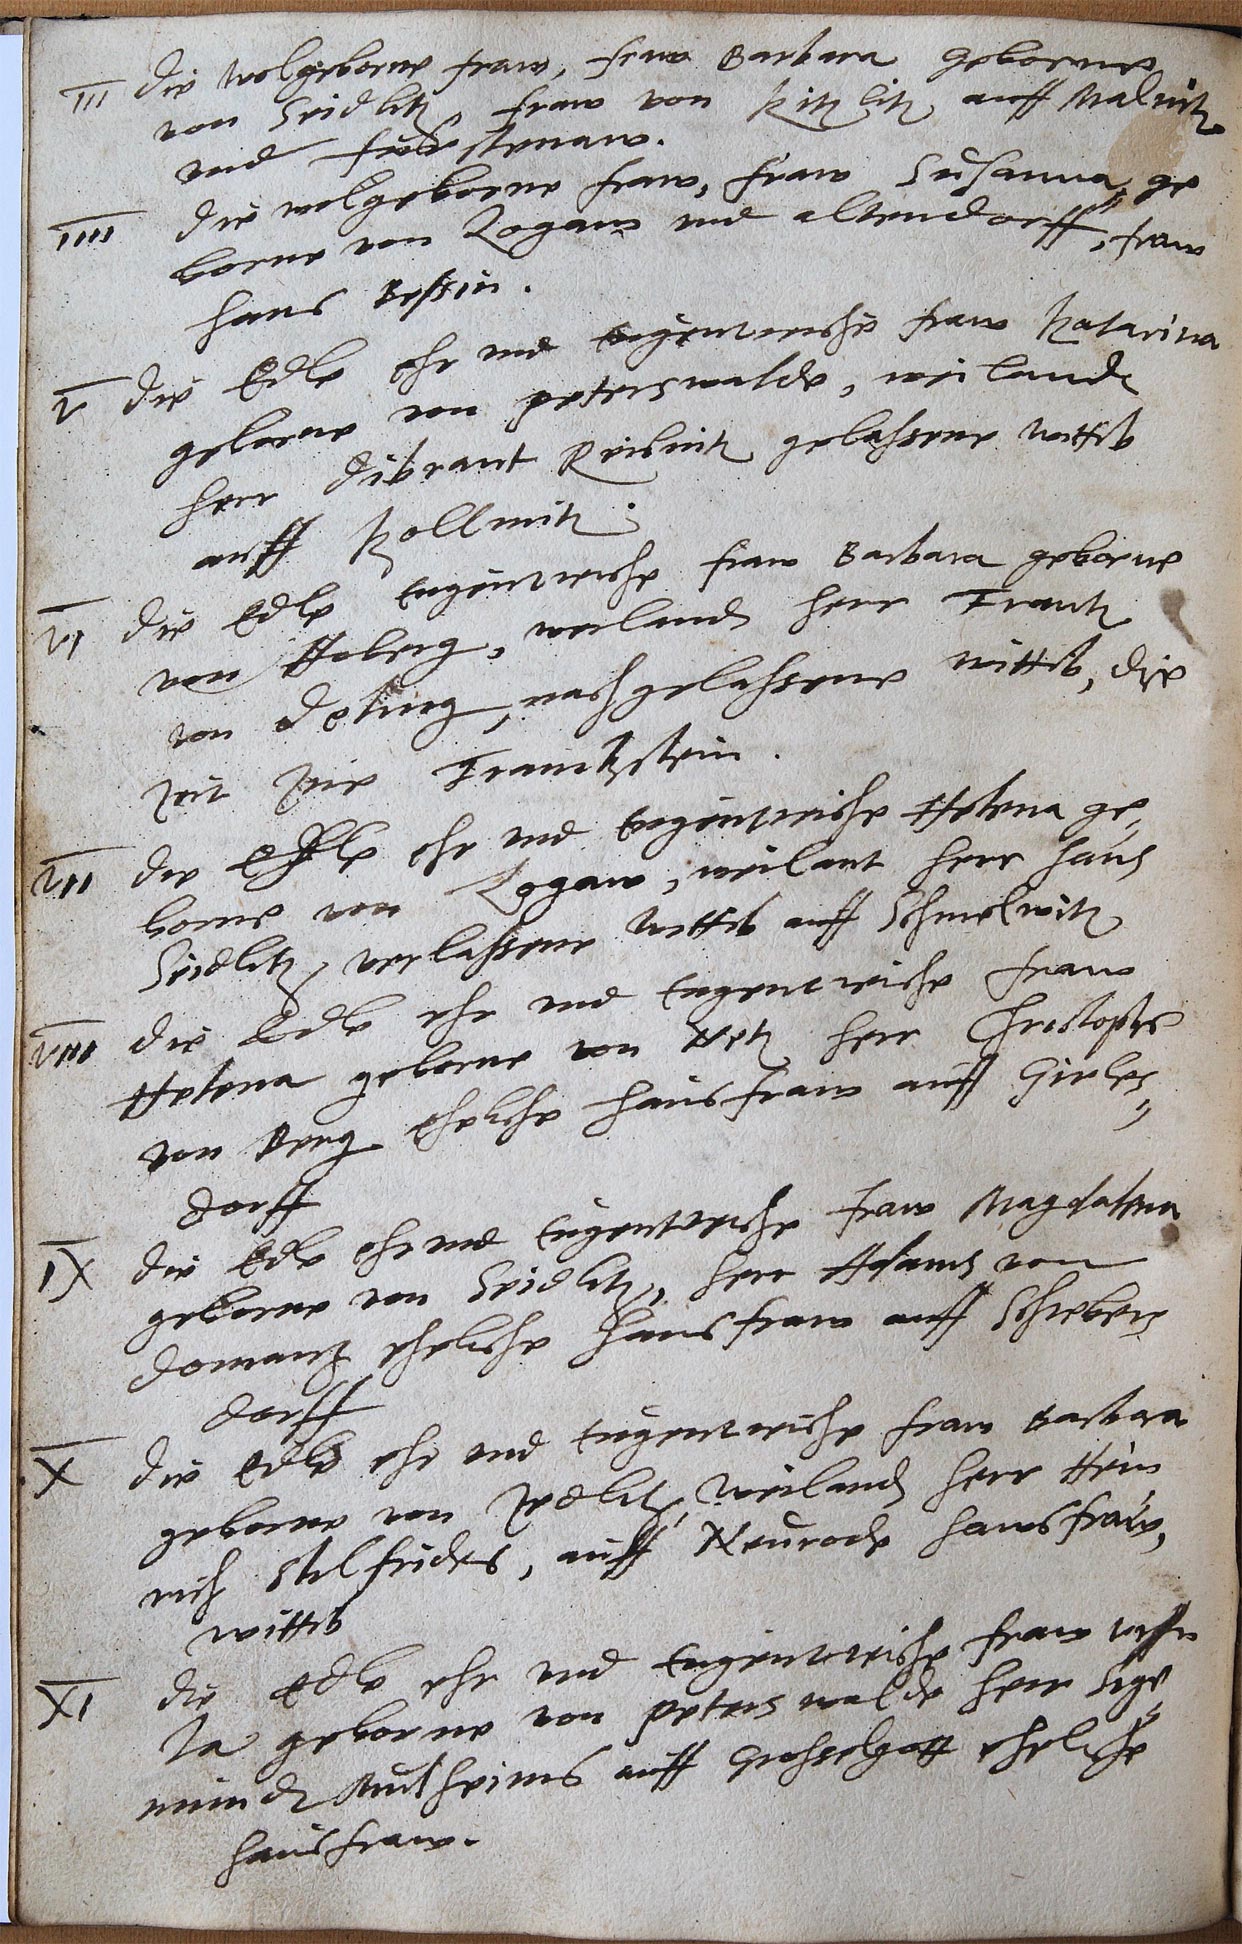 III die wolgeborne fraw, fraw Barbara geborne
von Seidlitz, fraw von Kitzlitz auff Malnitz
und Fürstenaw.
IIII die wolgeborne fraw, fraw Susanna, ge
borne von Logaw und altendorff, fraw
Hans
V die Edle ehr und tugentreiche fraw Katarina
geborne von peterswalde, weilandt
herr gelassene wittib
auff Kollmitz.
VI die Edle tugentreiche fraw Barbara geborne
von Hoberg, weilandt herr Frantz
von nachgelassene wittib, die
Zeit Frankstein.
VII die Edle ehr und tugentreiche Helena ge,
borne von Logaw, weilant herr Hans
Seidlitz, verlassene wittib auff Schmelwitz
VIII die Edle ehr und tugentreiche fraw
Helena geborne von herr Christophs
von Berg eheliche hausfraw auff
dorff
IX die Edle ehr und tugentreiche fraw Magdalena
geborne von Seidlitz, herr Adams von
Domantz eheliche hausfraw auff
dorff
X die Edle ehr und tugentreiche fraw Barbara
geborne von Zedlitz, weilandt herr Hein
rich Stilfrides, auff Neurode hausfraw,
wittib
XI die Edle ehr und tugentreiche fraw
la geborne von peterswalde herr Sige"
mundt auff eheliche
hausfraw.